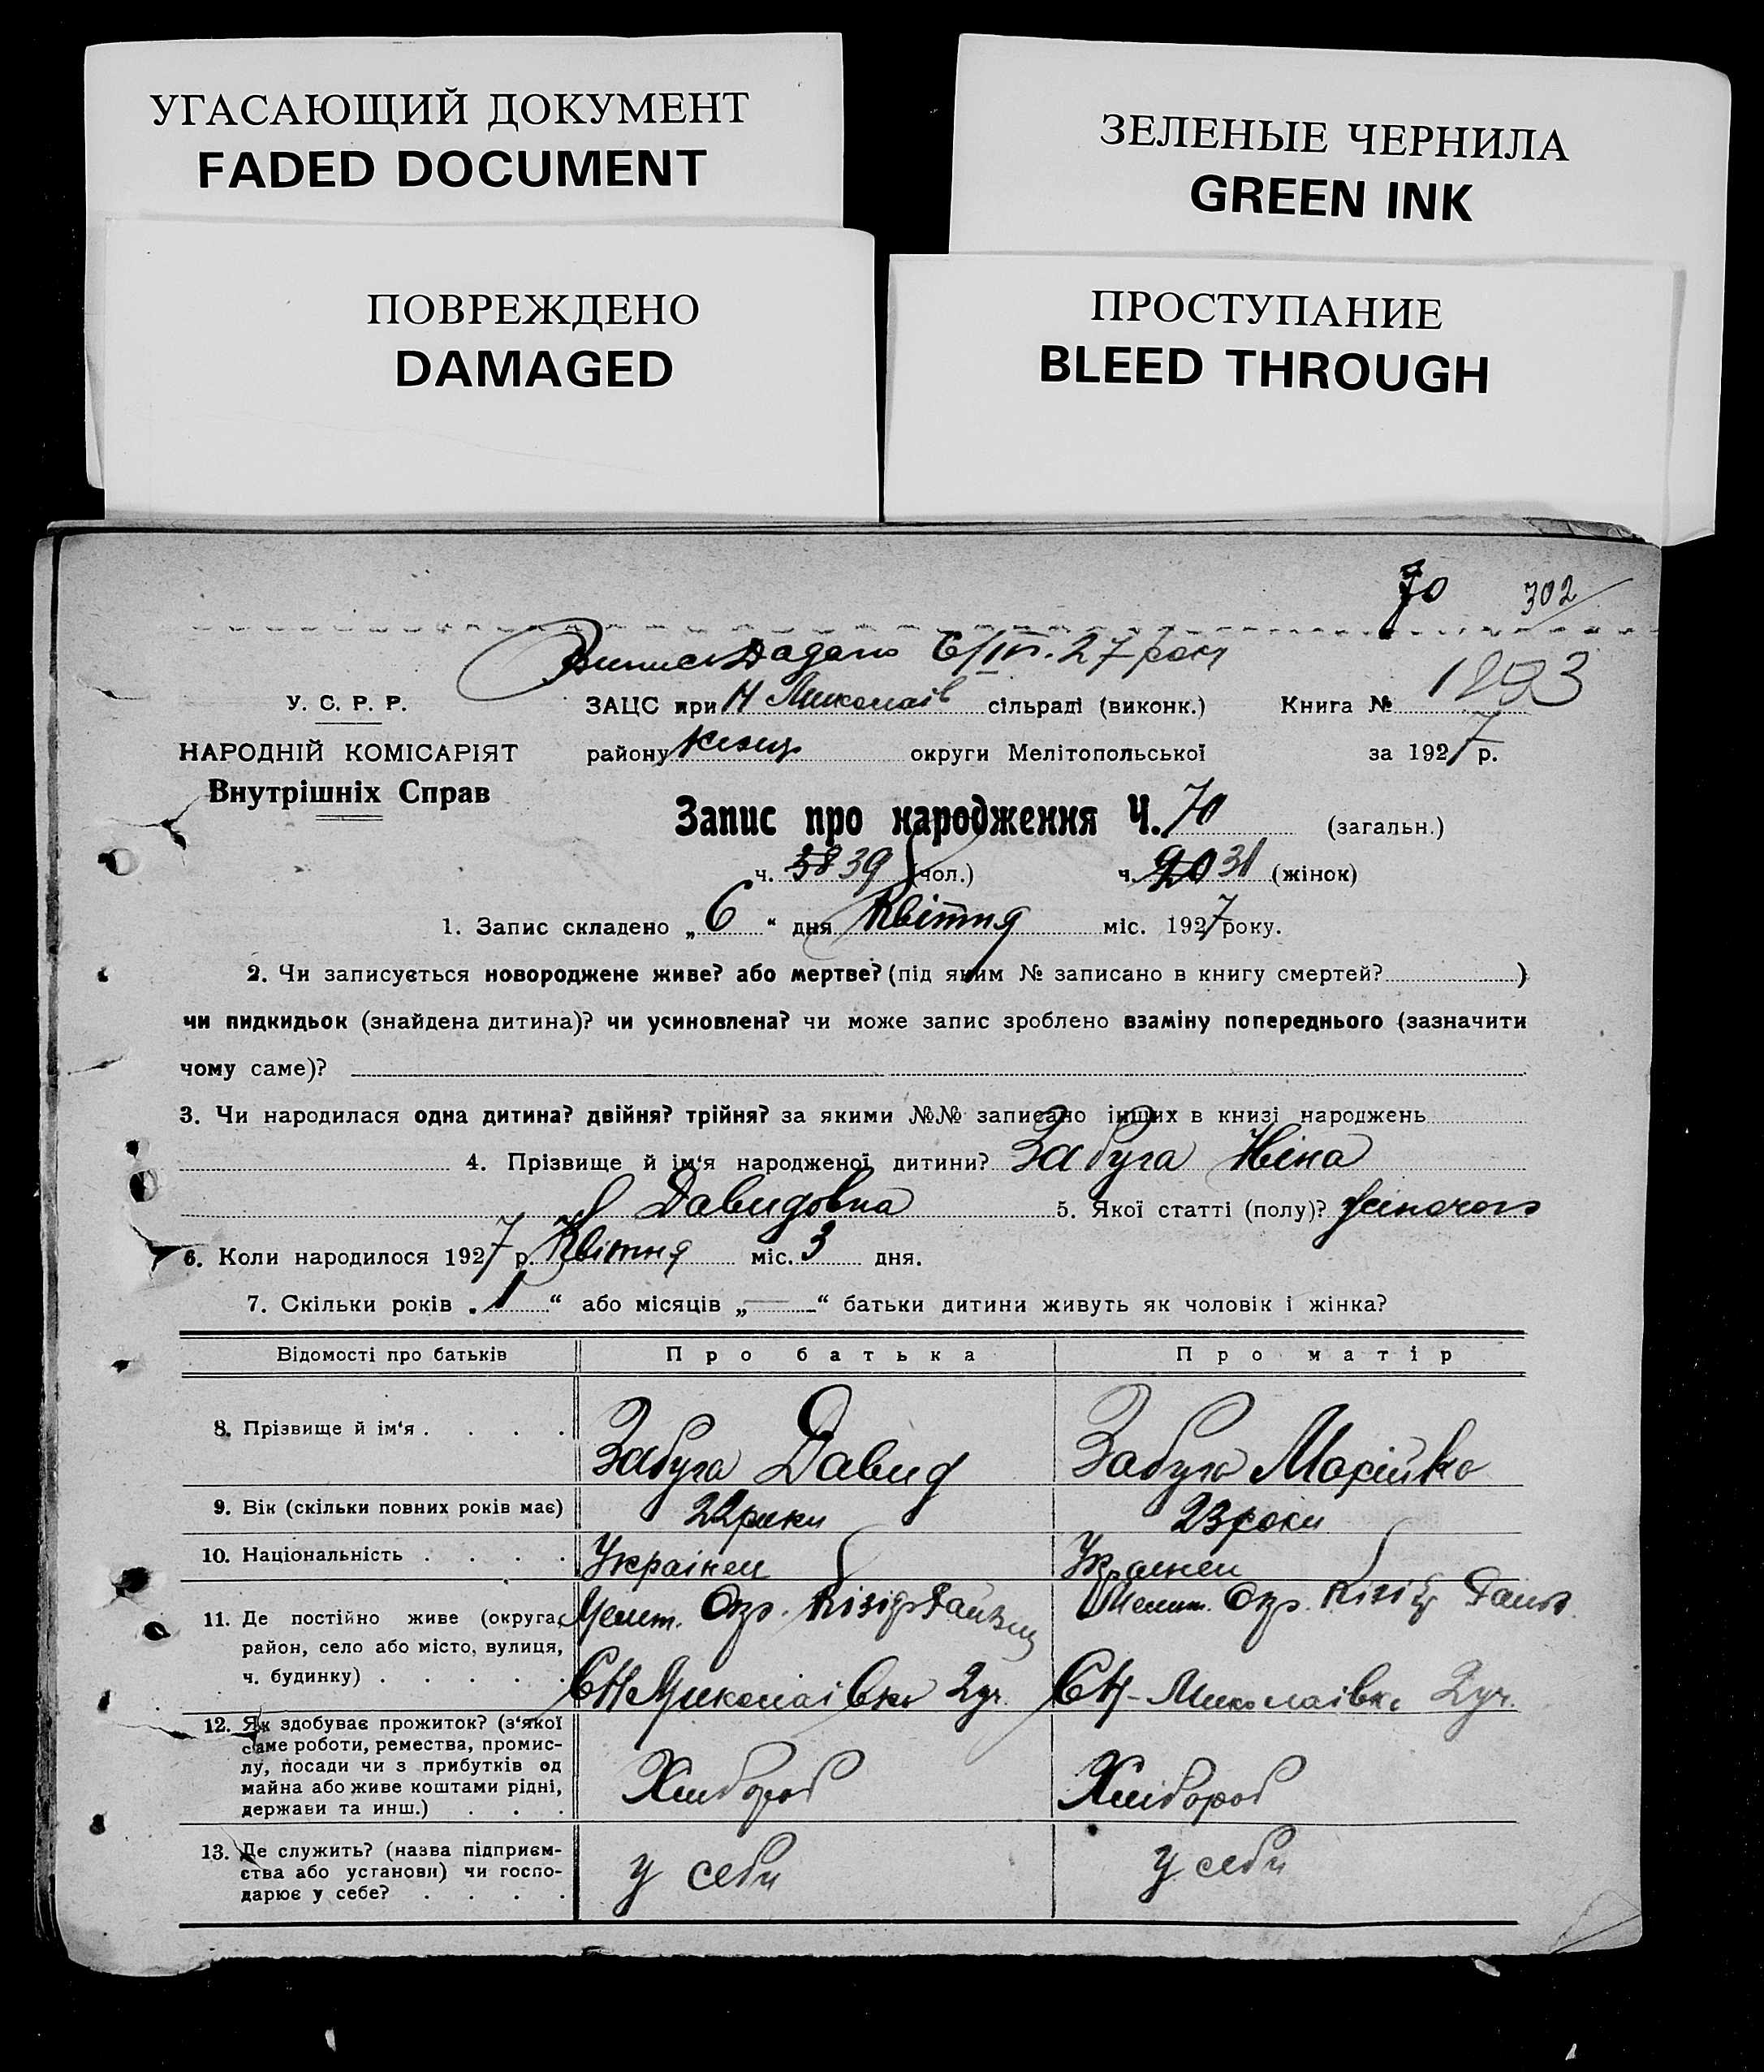 УГАСАЮЩИЙ ДОКУМЕНТ
FADED DOCUMENT
ЗЕЛЕНЫЕ ЧЕРНИЛА
GREEN INK
ПОВРЕЖДЕНО
DAMAGED
ПРОСТУПАНИЕ
BLEED THROUGH
70 302
27 року
У. С. Р. Р. ЗАЦС при Н Миколаїв сільраді (виконк.) Книга № 1893
НАРОДНІЙ КОМІСАРІЯТ району округи Мелітопольської за 1927 р.
Внутрішніх Справ
Запис про народження Ч. 70 (загальн.)
ч. 38 39 (чол.) ч. 31 (жінок)
1. Запис складено „ 6 “ дня Квітня міс. 1927 року.
2. Чи записується новороджене живе? або мертве? (під яким № записано в книгу смертей? )
чи пидкидьок (знайдена дитина)? чи усиновлена? чи може запис зроблено взаміну попереднього (зазначити
чому саме)?
3. Чи народилася одна дитина? двійня? трійня? за якими №№ записано інших в книзі народжень
4. Прізвище й ім‘я народженої дитини? Забуга Ніна
Давидовна 5. Якої статті (полу)?
6. Коли народилося 1927 р. Квітня міс. 3 дня.
7. Скільки років „ 1 “ або місяців „ — “ батьки дитини живуть як чоловік і жінка?
Відомості про батьків Про батька Про матір
8. Прізвище й ім‘я . . . . Забуга Давид Забуга Марійка
9. Вік (скільки повних років має) 22 роки 23 роки
10. Національність . . . . Українец Українец
11. Де постійно живе (округа, Мелит. Окр. Кізіяр Мелит. Окр. Кізіяр
район, село або місто, вулиця,
ч. будинку) . . . . . СН Миколаівка 2 уч. СН - Миколаівка 2 уч.
12. Як здобуває прожиток? (з‘якої
саме роботи, ремества, промис-
лу, посади чи з прибутків од
майна або живе коштами рідні,
держави та инш.) . . . Хлибороб Хлібороб
13. Де служить? (назва підприєм-
ства або установи) чи госпо-
дарює у себе? . . . . у себи у себи